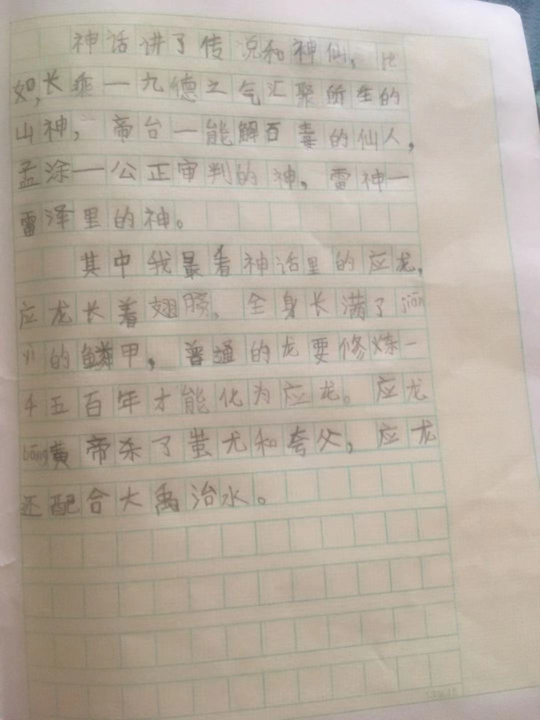 神话讲了传说和神仙，比
如，长乖一九德之气汇聚所生的
山神，帝台一能解百毒的仙人，
孟涂一公正审判的神，雷神一
雷泽里的神。
其中我最看神话里的应龙，
应龙长着翅膀，全身长满了jiān
yì的鳞甲，普通的龙要修炼一
千五百年才能化为应龙。应龙
bāng黄帝杀了蚩尤和夸父，应龙
还配合大禹治水。